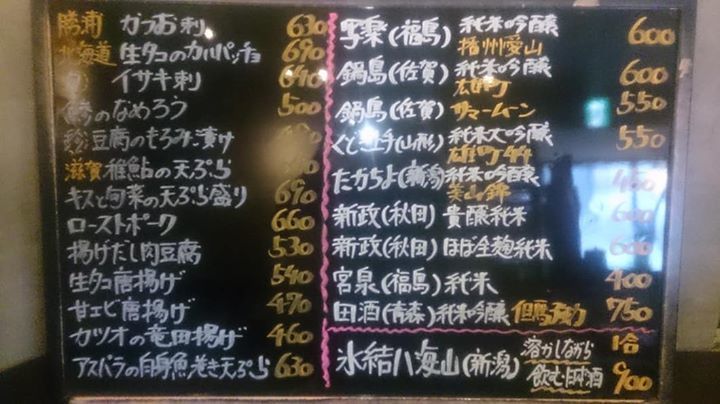 勝浦 カツお刺 630
北海道 生タコのカルパッチョ 690
イサキ刺 640
鯵のなめろう 500
豆腐のもろみ漬け
滋賀 稚鮎の天ぷら
キスと旬菜の天ぷら盛り 690
ローストポーク 660
揚げだし肉豆腐 530
生タコ唐揚げ 540
甘エビ唐揚げ 470
カツオの竜田揚げ 460
アスパラの白身魚巻き天ぷら 630
写樂(福島) 純米吟醸 播州愛山 600
鍋島(佐賀) 純米吟醸 雄町 600
鍋島(佐賀) サマームーン 550
くどき上手(山形) 純米大吟醸 雄町44 550
たかちよ(新潟) 純米吟醸 美山錦
新政(秋田) 貴醸純米 600
新政(秋田) ほぼ全麹純米 600
宮泉(福島) 純米 400
田酒(青森) 純米吟醸 但馬 750
氷結八海山(新潟) 溶かしながら飲む日本酒 1合 900